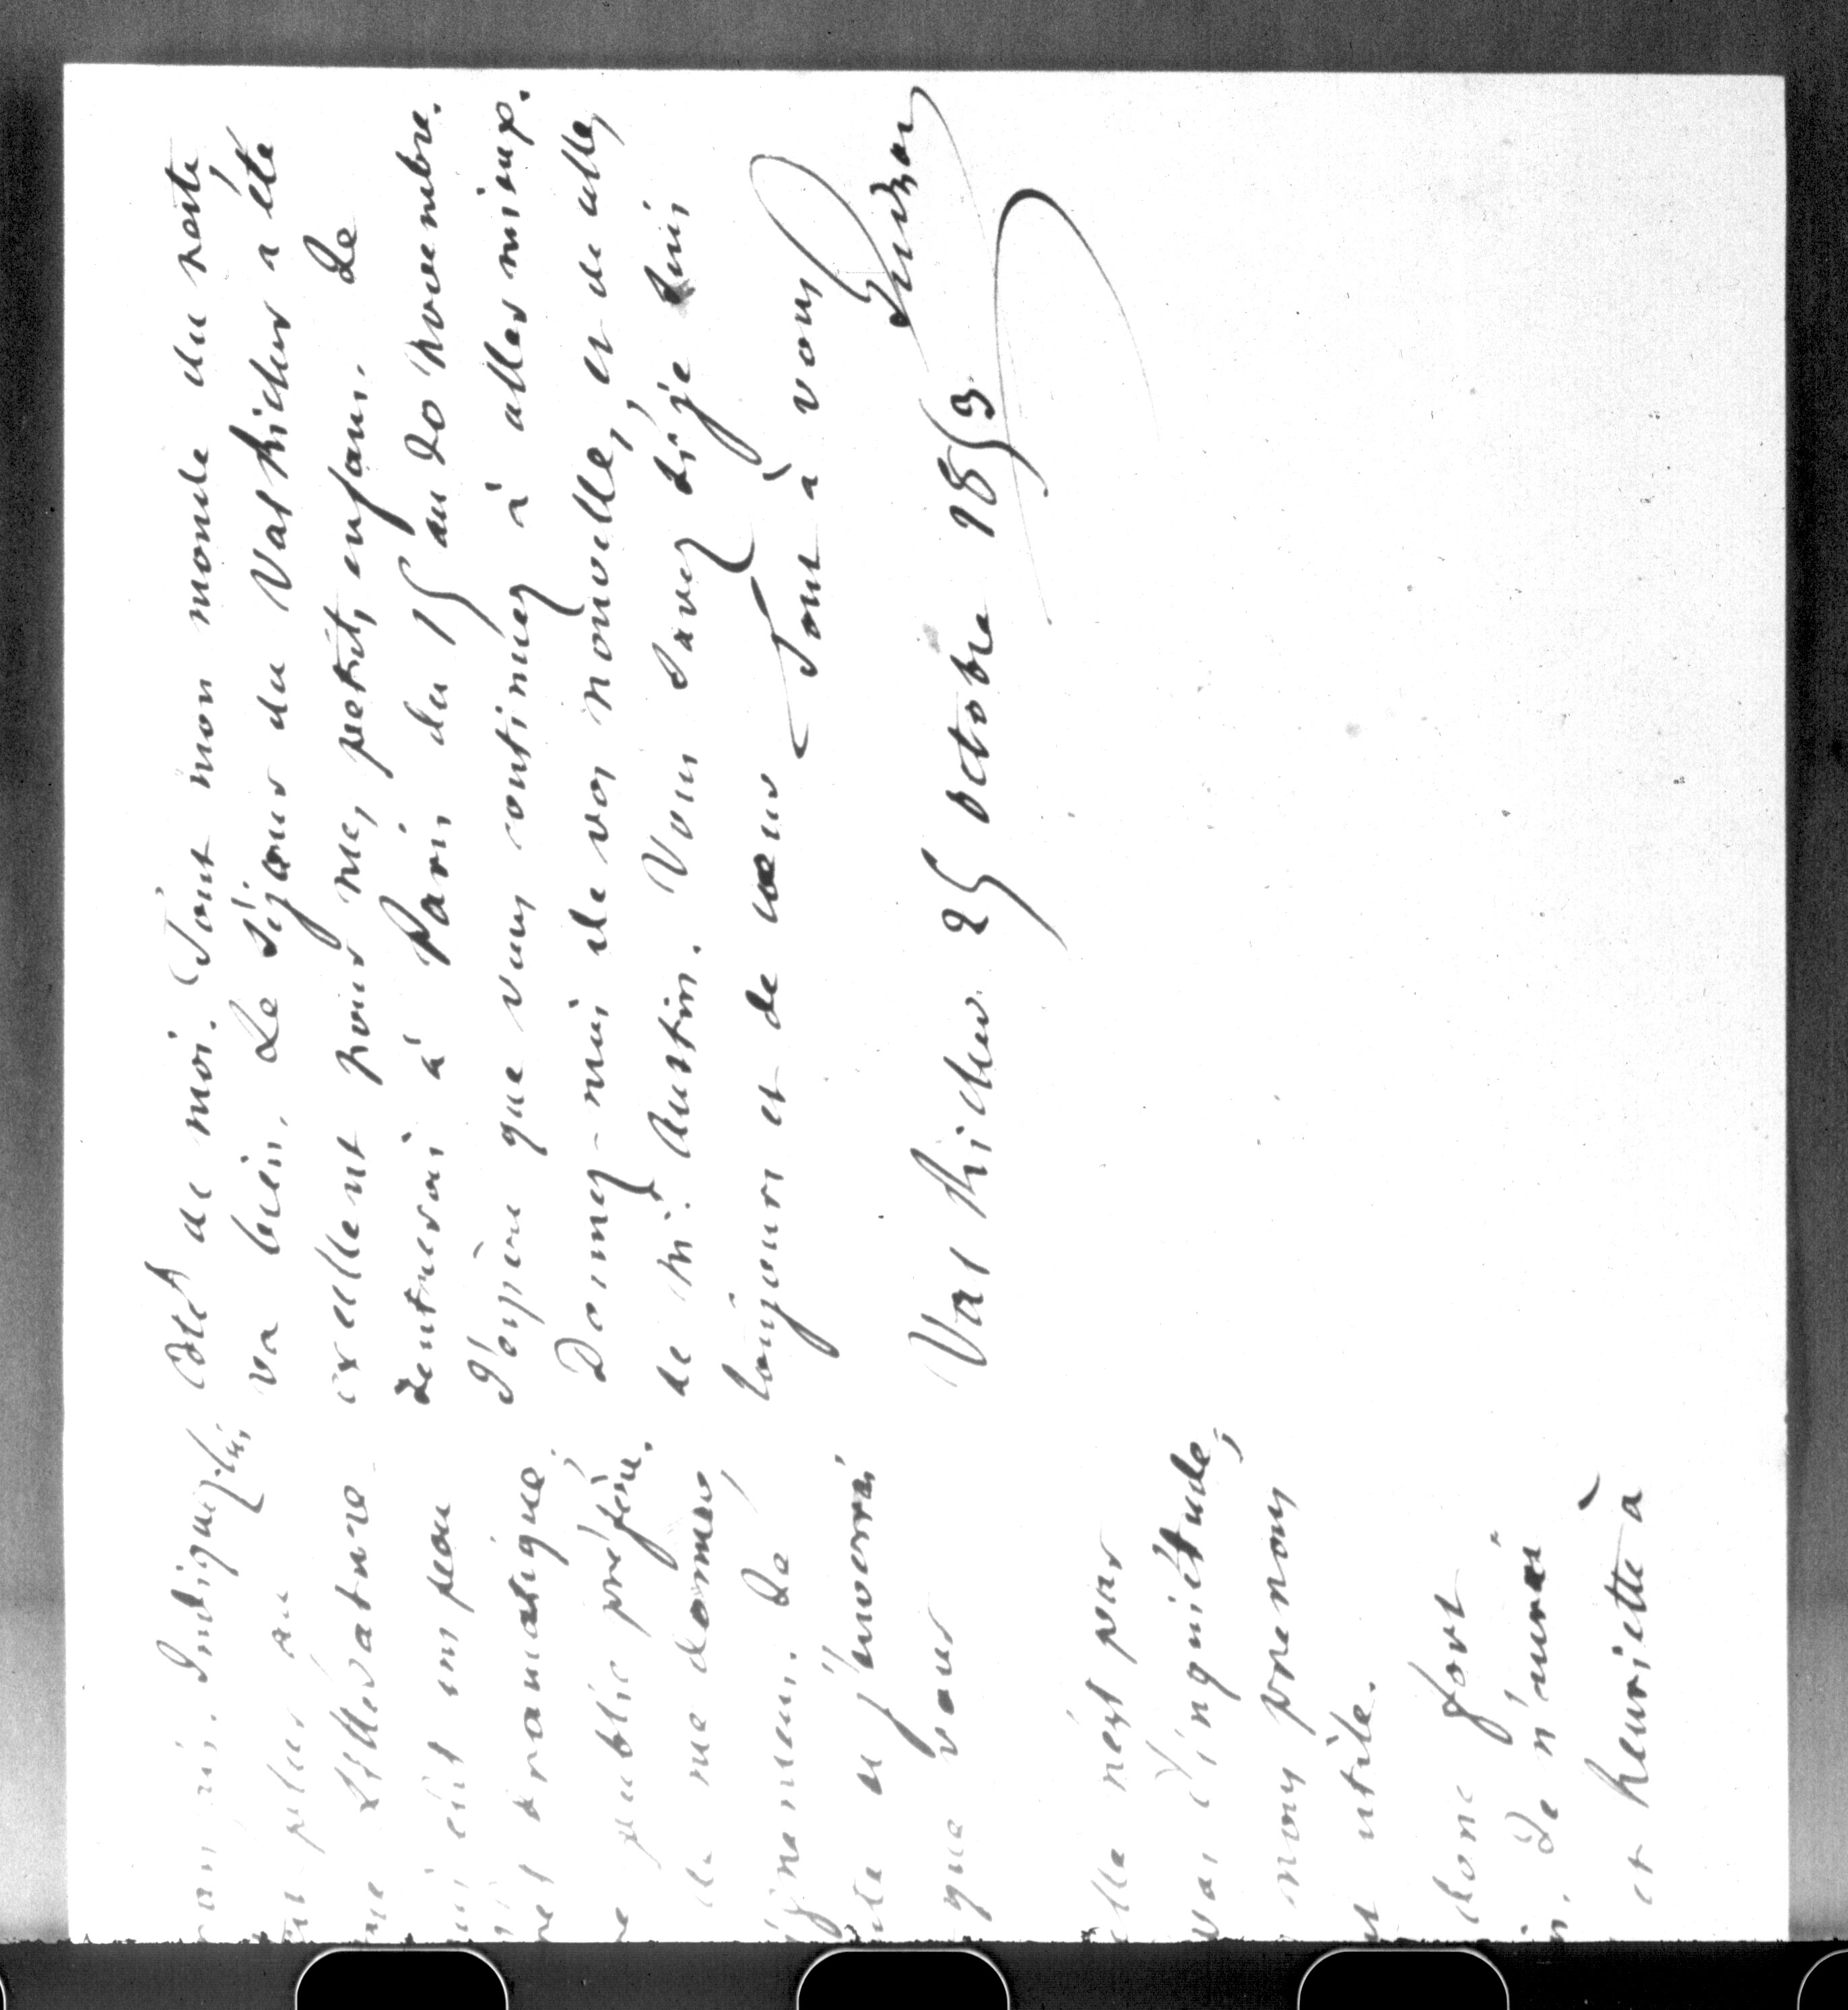 Indiquez-lui
plus au
littérature
est un peu
dramatique,
public préfère.
de me donner,
Je
et j'enverrai
que vous
elle n'est pas
d'inquiétude,
nous prenons
utile.
donc fort
Je n'aurai
et henriette à
côté de moi. Tout mon monde du reste
va bien. Le séjour du Val Richer a été
excellent pour mes petits enfans. Je
rentrerai à Paris du 15 au 20 novembre.
J'espère que vous continuez à aller mieux.
Donnez-moi de vos nouvelles, et de celles
de M. Austin. Vous savez si je suis
toujours et de cœur
Tout à vous
Guizot
Val Richer 25 octobre 1853